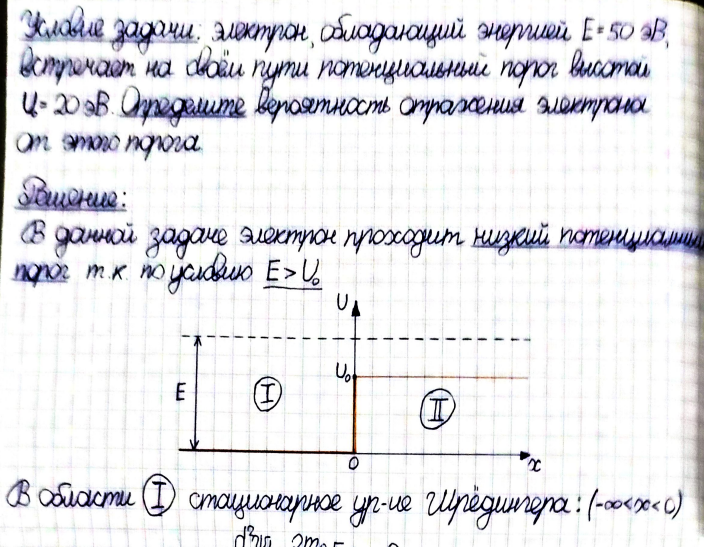 Условие задачи: электрон, обладающий энергией E=50 эВ,
встречает на своём пути потенциальный порог высотой
U=20 эВ. Определите вероятность отражения электрона
от этого порога
Решение:
В данной задаче электрон проходит низкий потенциальный
порог т.к. по условию E>U₀
U
U₀
E
I
II
0
x
В области I стационарное ур-ие Шрёдингера: (-∞<x<0)